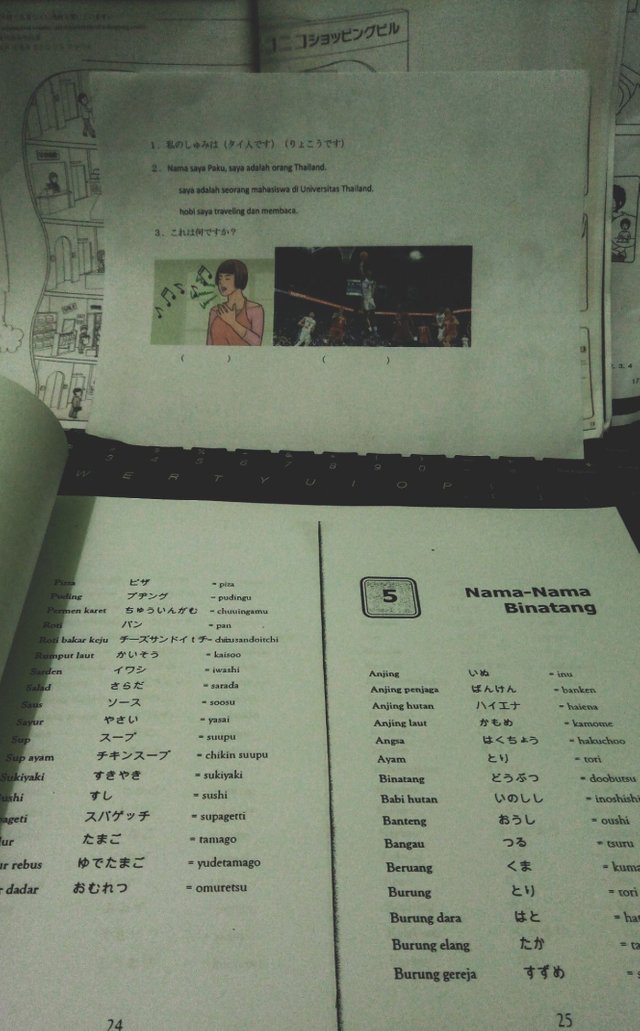 ショッピングビル
1．私のしゅみは（タイ人です）（りょこうです）
2．Nama saya Paku, saya adalah orang Thailand.
saya adalah seorang mahasiswa di Universitas Thailand.
hobi saya traveling dan membaca.
3．これは何ですか？
( ) ( )
2, 3, 4
17
W E R T Y U I O P
Pizza ピザ = piza
Puding プヂング = pudingu
Permen karet ちゅういんがむ = chuuingamu
Roti パン = pan
Roti bakar keju チーズサンドイtチ
Rumput laut かいそう = kaisoo
Sarden イワシ = iwashi
Salad さらだ = sarada
Saus ソース = soosu
Sayur やさい = yasai
Sup スープ = suupu
Sup ayam チキンスープ = chikin suupu
Sukiyaki すきやき = sukiyaki
ushi すし = sushi
ageti スパゲッチ = supagetti
lur たまご = tamago
ur rebus ゆでたまご = yudetamago
r dadar おむれつ = omuretsu
24
5 Nama-Nama
Binatang
Anjing いぬ = inu
Anjing penjaga ばんけん = banken
Anjing hutan ハイエナ = haiena
Anjing laut かもめ = kamome
Angsa はくちょう = hakuchoo
Ayam とり = tori
Binatang どうぶつ = doobutsu
Babi hutan いのしし = inoshishi
Banteng おうし = oushi
Bangau つる = tsuru
Beruang くま = kuma
Burung とり = tori
Burung dara はと = ha
Burung elang たか = ta
Burung gereja すずめ = s
25